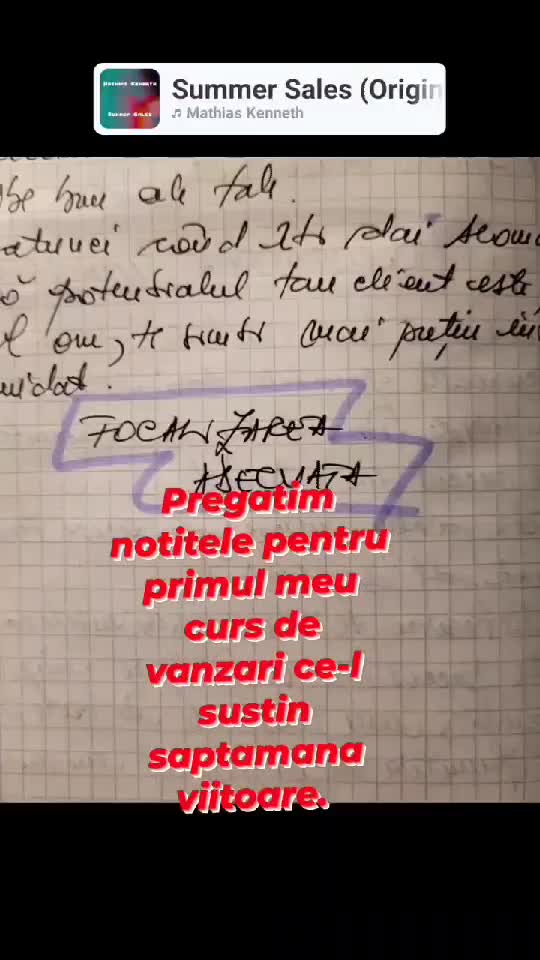 Summer Sales (Origin
♬ Mathias Kenneth
MATHIAS KENNETH
SUMMER SALES
ale tale.
atunci când îți dai seama
că potențialul tău client este
om, te simți mai puțin in
midat.
FOCALIZAREA
ADECVATA
Pregatim
notitele pentru
primul meu
curs de
vanzari ce-l
sustin
saptamana
viitoare.